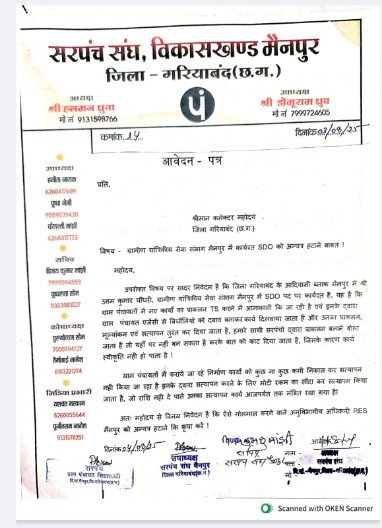 सरपंच संघ, विकासखण्ड मैनपुर
जिला - गरियाबंद(छ.ग.)
अध्यक्ष
श्री हलमन धुर्वा
मो नं 9131598766
उपाध्यक्ष
श्री डोमूराम ध्रुव
मो नं 7999724605
क्रमांक 14
दिनांक 03/09/25
आवेदन - पत्र
उपाध्यक्ष
हनीफ नायक
6260417609
पुष्पा नेगी
9589839430
6268317773
सचिव
7999594559
9303981527
कोषाध्यक्ष
7000704727
8103221274
मिडिया प्रभारी
6260055644
9131378351
प्रति,
श्रीमान कलेक्टर महोदय
जिला गरियाबंद (छ.ग.)
विषय - ग्रामीण यांत्रिकीय सेवा संभाग मैनपुर में कार्यरत SDO को अन्यत्र हटाने बाबत !
महोदय,
उपरोक्त विषय पर सादर निवेदन है कि जिला गरियाबंद के आदिवासी ब्लाक मैनपुर में श्री
उत्तम कुमार चौधरी, ग्रामीण यांत्रिकीय सेवा संभाग मैनपुर में SDO पद पर कार्यरत है, यह है कि
ग्राम पंचायतों में नए कार्यों का प्राकलन TS करने में आनाकानी कि जा रही है एवं इनके द्वारा
ग्राम पंचायत एजेंसी से बिचौलियो को दबाव बनाकर कार्य दिलवाया जाता है और उनका प्राकलन,
मूल्यांकन एवं सत्यापन तुरंत कर दिया जाता है, हमारे साथी सरपंचो द्वारा प्राकलन बनाने बोला
जाता है तो यहाँ पर नही बन सकता है करके बात को काट दिया जाता है, जिसके कारण कार्य
स्वीकृति नही हो पाता है !
ग्राम पंचायतों में कराये जा रहे निर्माण कार्यो को कुछ ना कुछ कमी निकाल कर सत्यापन
नही किया जा रहा है इनके द्वारा सत्यापन करने के लिए मोटी रकम का सौदा कर सत्यापन किया
जाता है, जो राशि नही दे पाते उनका सत्यापन कार्य आजपर्यंत तक लंबित रखा गया है!
अतः महोदय से विनम्र निवेदन है कि ऐसे गोलमाल करने वाले अनुविभागीय अधिकारी RES
मैनपुर को अन्यत्र हटाने कि कृपा करें !
सरपंच
उपाध्यक्ष
सरपंच संघ मैनपुर
जिला-गरियाबंद (छ.ग.)
सचिव
अध्यक्ष
सरपंच संघ
Scanned with OKEN Scanner